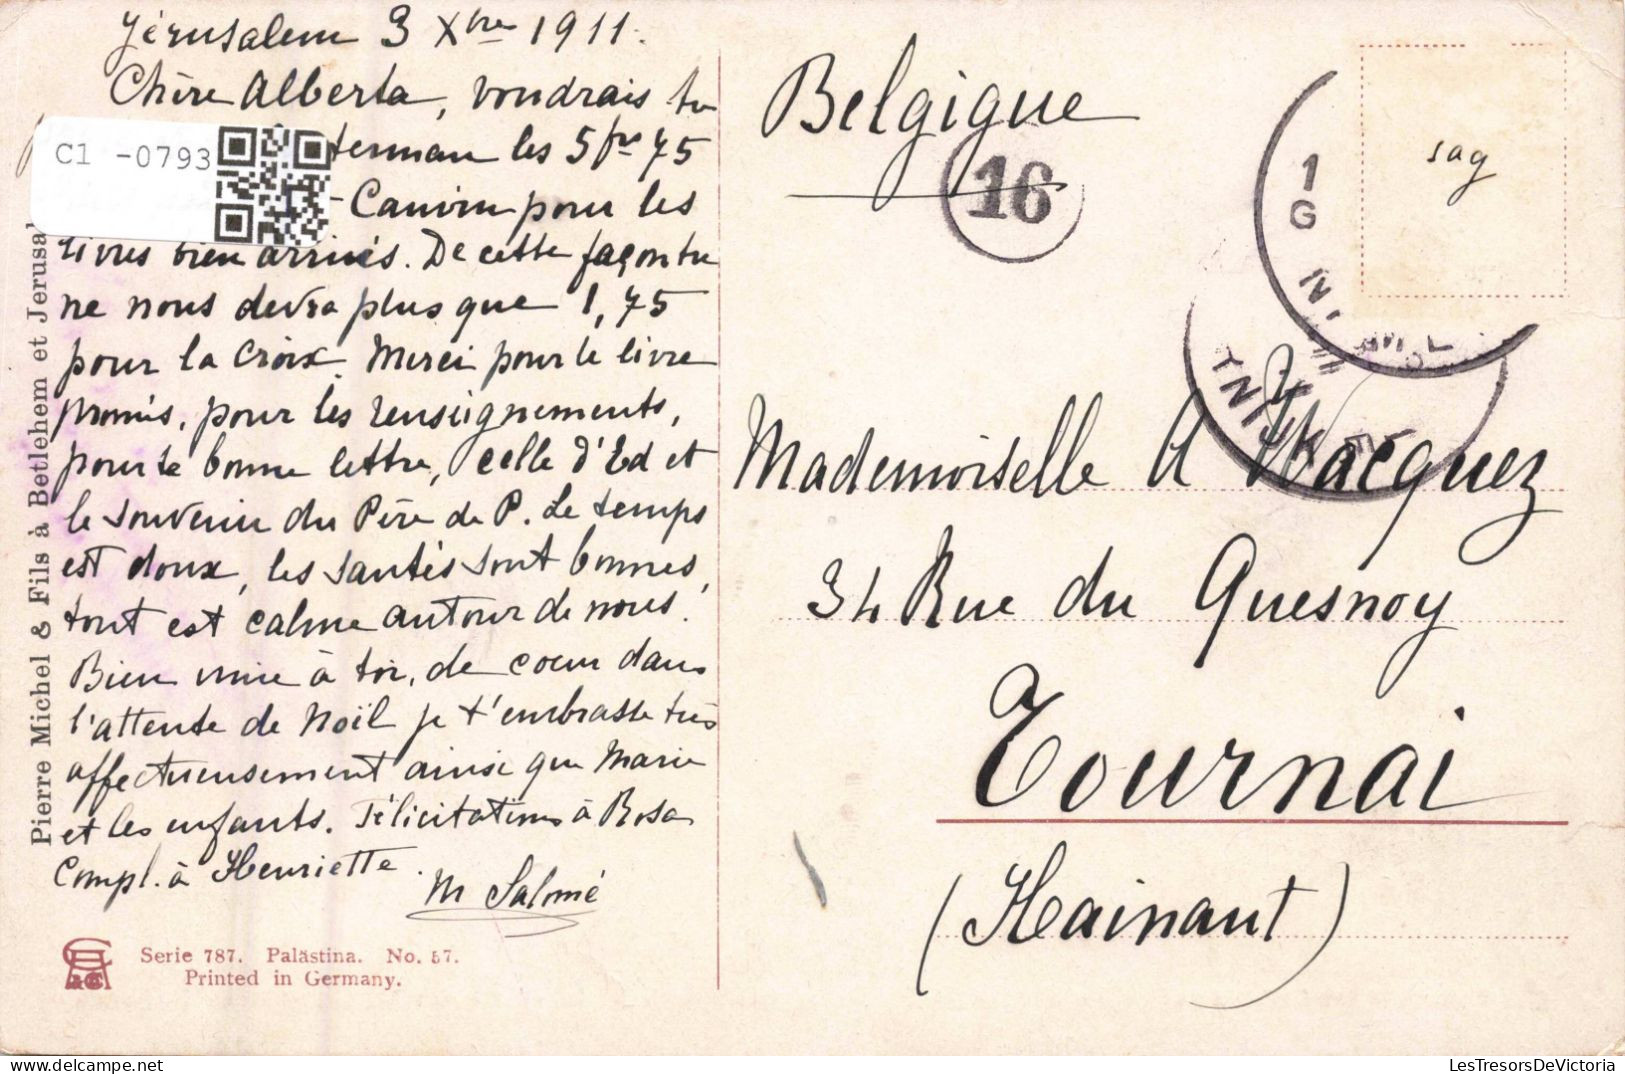 Jérusalem 3 Xbre 1911.
Chère Alberta, voudrais tu
les 5 frs 75
Cauvin pour les
livres bien arrivés. De cette façon tu
ne nous devra plus que 1,75
pour la croix. Merci pour le livre
promis, pour les renseignements,
pour ta bonne lettre, celle d'Ed et
le souvenir du Père de P. Le temps
est doux, les santés sont bonnes,
tout est calme autour de nous!
Bien unie à toi, de coeur dans
l'attente de Noël je t'embrasse très
affectueusement ainsi que Marie
et les enfants. Félicitations à Rosa
Compl. à Henriette.
M Salomé
C1 -0793
Pierre Michel & Fils à Betlehem et Jerusal
Serie 787. Palästina. No. 57.
Printed in Germany.
Belgique
16
sag
1
G
Mademoiselle A Wacquez
34 Rue du Quesnoy
Tournai
(Hainaut)
LesTresorsDeVictoria